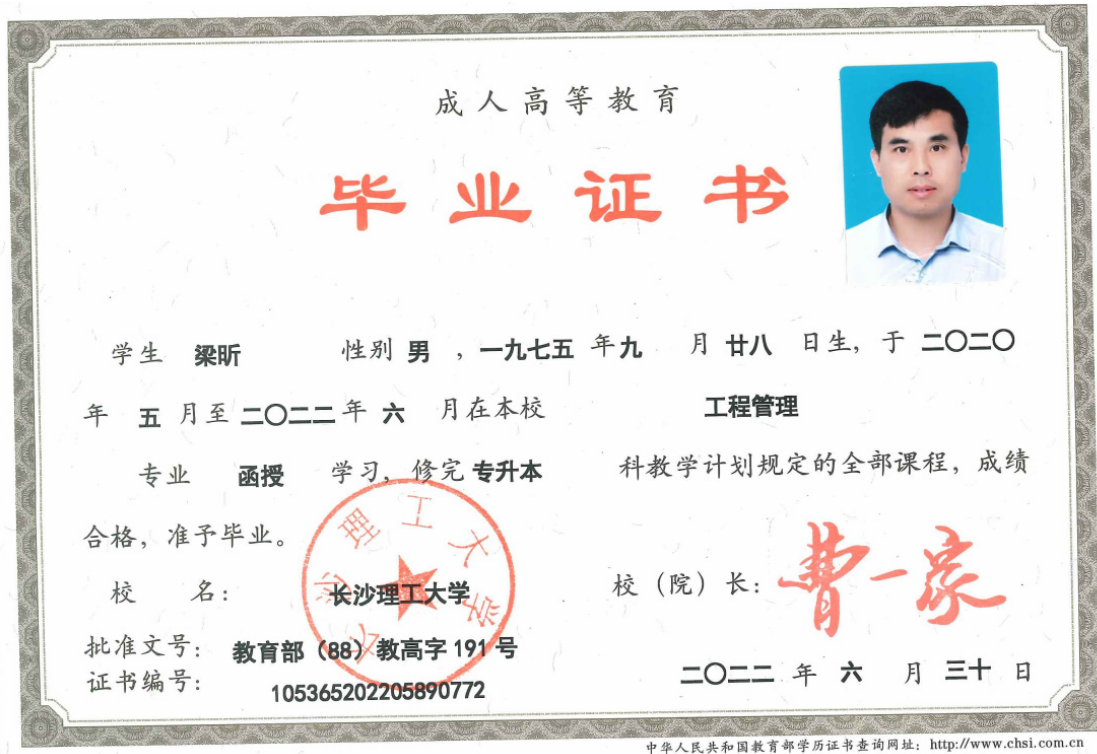 成人高等教育
毕业证书
学生 梁昕 性别 男 ，一九七五 年九 月 廿八 日生，于 二〇二〇
年 五 月至 二〇二二 年 六 月在本校 工程管理
专业 函授 学习，修完 专升本 科教学计划规定的全部课程，成绩
合格，准予毕业。
校 名： 长沙理工大学
校（院）长： 曹一家
批准文号： 教育部（88）教高字 191 号
证书编号： 105365202205890772
二〇二二 年 六 月 三十 日
长沙理工大学
中华人民共和国教育部学历证书查询网址：http://www.chsi.com.cn